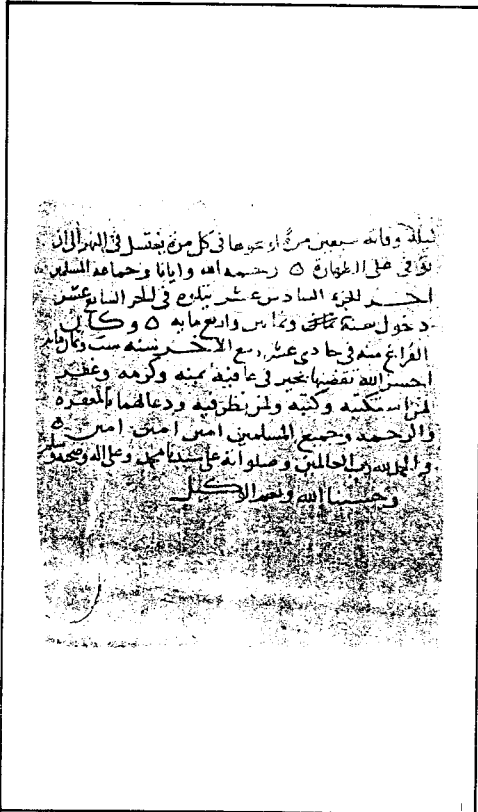 ليلة وفاته سبعين مرة او نحوها في كل مرة يغتسل في النهر الى ان
توفي على الطهارة ه رحمه الله وايانا وجماعة المسلمين
اخر الجزء السادس عشر يتلوه في الجزء السابع عشر
دخول سنة وثمانين واربع مايه ه وكان
الفراغ منه في حادي عشر ربيع الاخر سنه ست
احسن الله تقضيها بخير في عافية بمنه وكرمه وغفر
لمن استكتبه وكتبه ولمن نظر فيه ودعا لهما بالمغفرة
والرحمة وجميع المسلمين امين امين امين ه
والحمد لله رب العالمين وصلواته على سيدنا محمد وعلى اله وصحبه وسلم
وحسبنا الله ونعم الوكيل